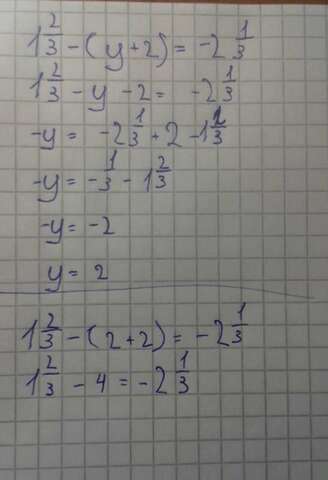 1 2/3 - (y + 2) = -2 1/3
1 2/3 - y - 2 = -2 1/3
-y = -2 1/3 + 2 - 1 2/3
-y = -1/3 - 1 2/3
-y = -2
y = 2
1 2/3 - (2 + 2) = -2 1/3
1 2/3 - 4 = -2 1/3